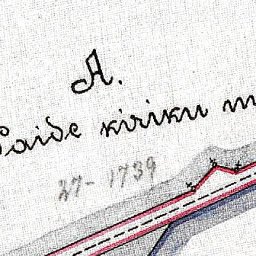 A.
Paide kiriku m
27-1739